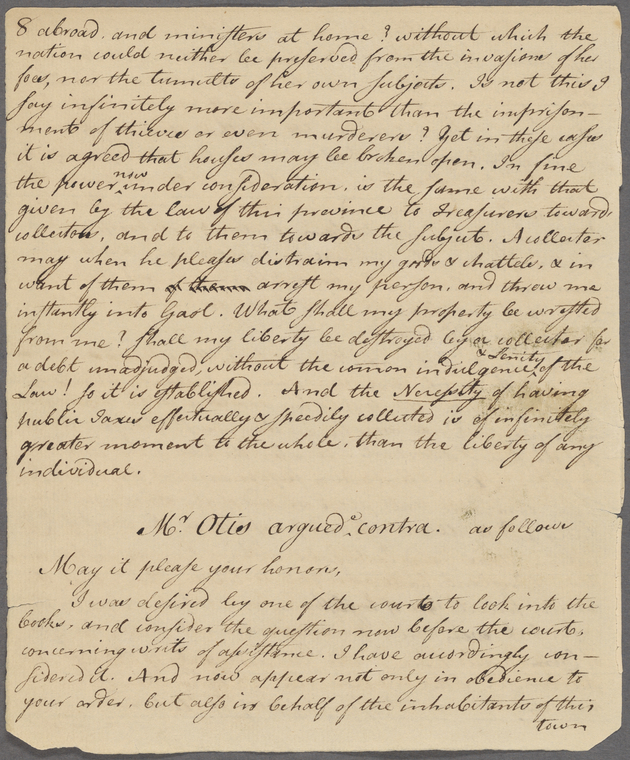 8 abroad, and ministers at home? without which the
nation could neither be preserved from the invasions of her
foes, nor the tumults of her own subjects. Is not this I
say infinitely more important than the imprison-
ment of thieves or even murderers? Yet in these cases
it is agreed that houses may be broken open. In fine
the power now under consideration, is the same with that
given by the law of this province to Treasurers towards
collectors, and to them towards the subject. A collector
may when he pleases distrain my goods & chattels, & in
want of them of them arrest my person, and throw me
instantly into Gaol. What shall my property be wrested
from me? shall my liberty be destroyed by a collector for
a debt unadjudged, without the common indulgence & Lenity of the
Law! So it is established. And the Necessity of having
public Taxes effectually & speedily collected is of infinitely
greater moment to the whole, than the liberty of any
individual.
Mr. Otis argued contra. as follows
May it please your honors,
I was desired by one of the court to look into the
books, and consider the question now before the court,
concerning writs of assistance. I have accordingly con-
sidered it. And now appear not only in obedience to
your order, but also in behalf of the inhabitants of this
town